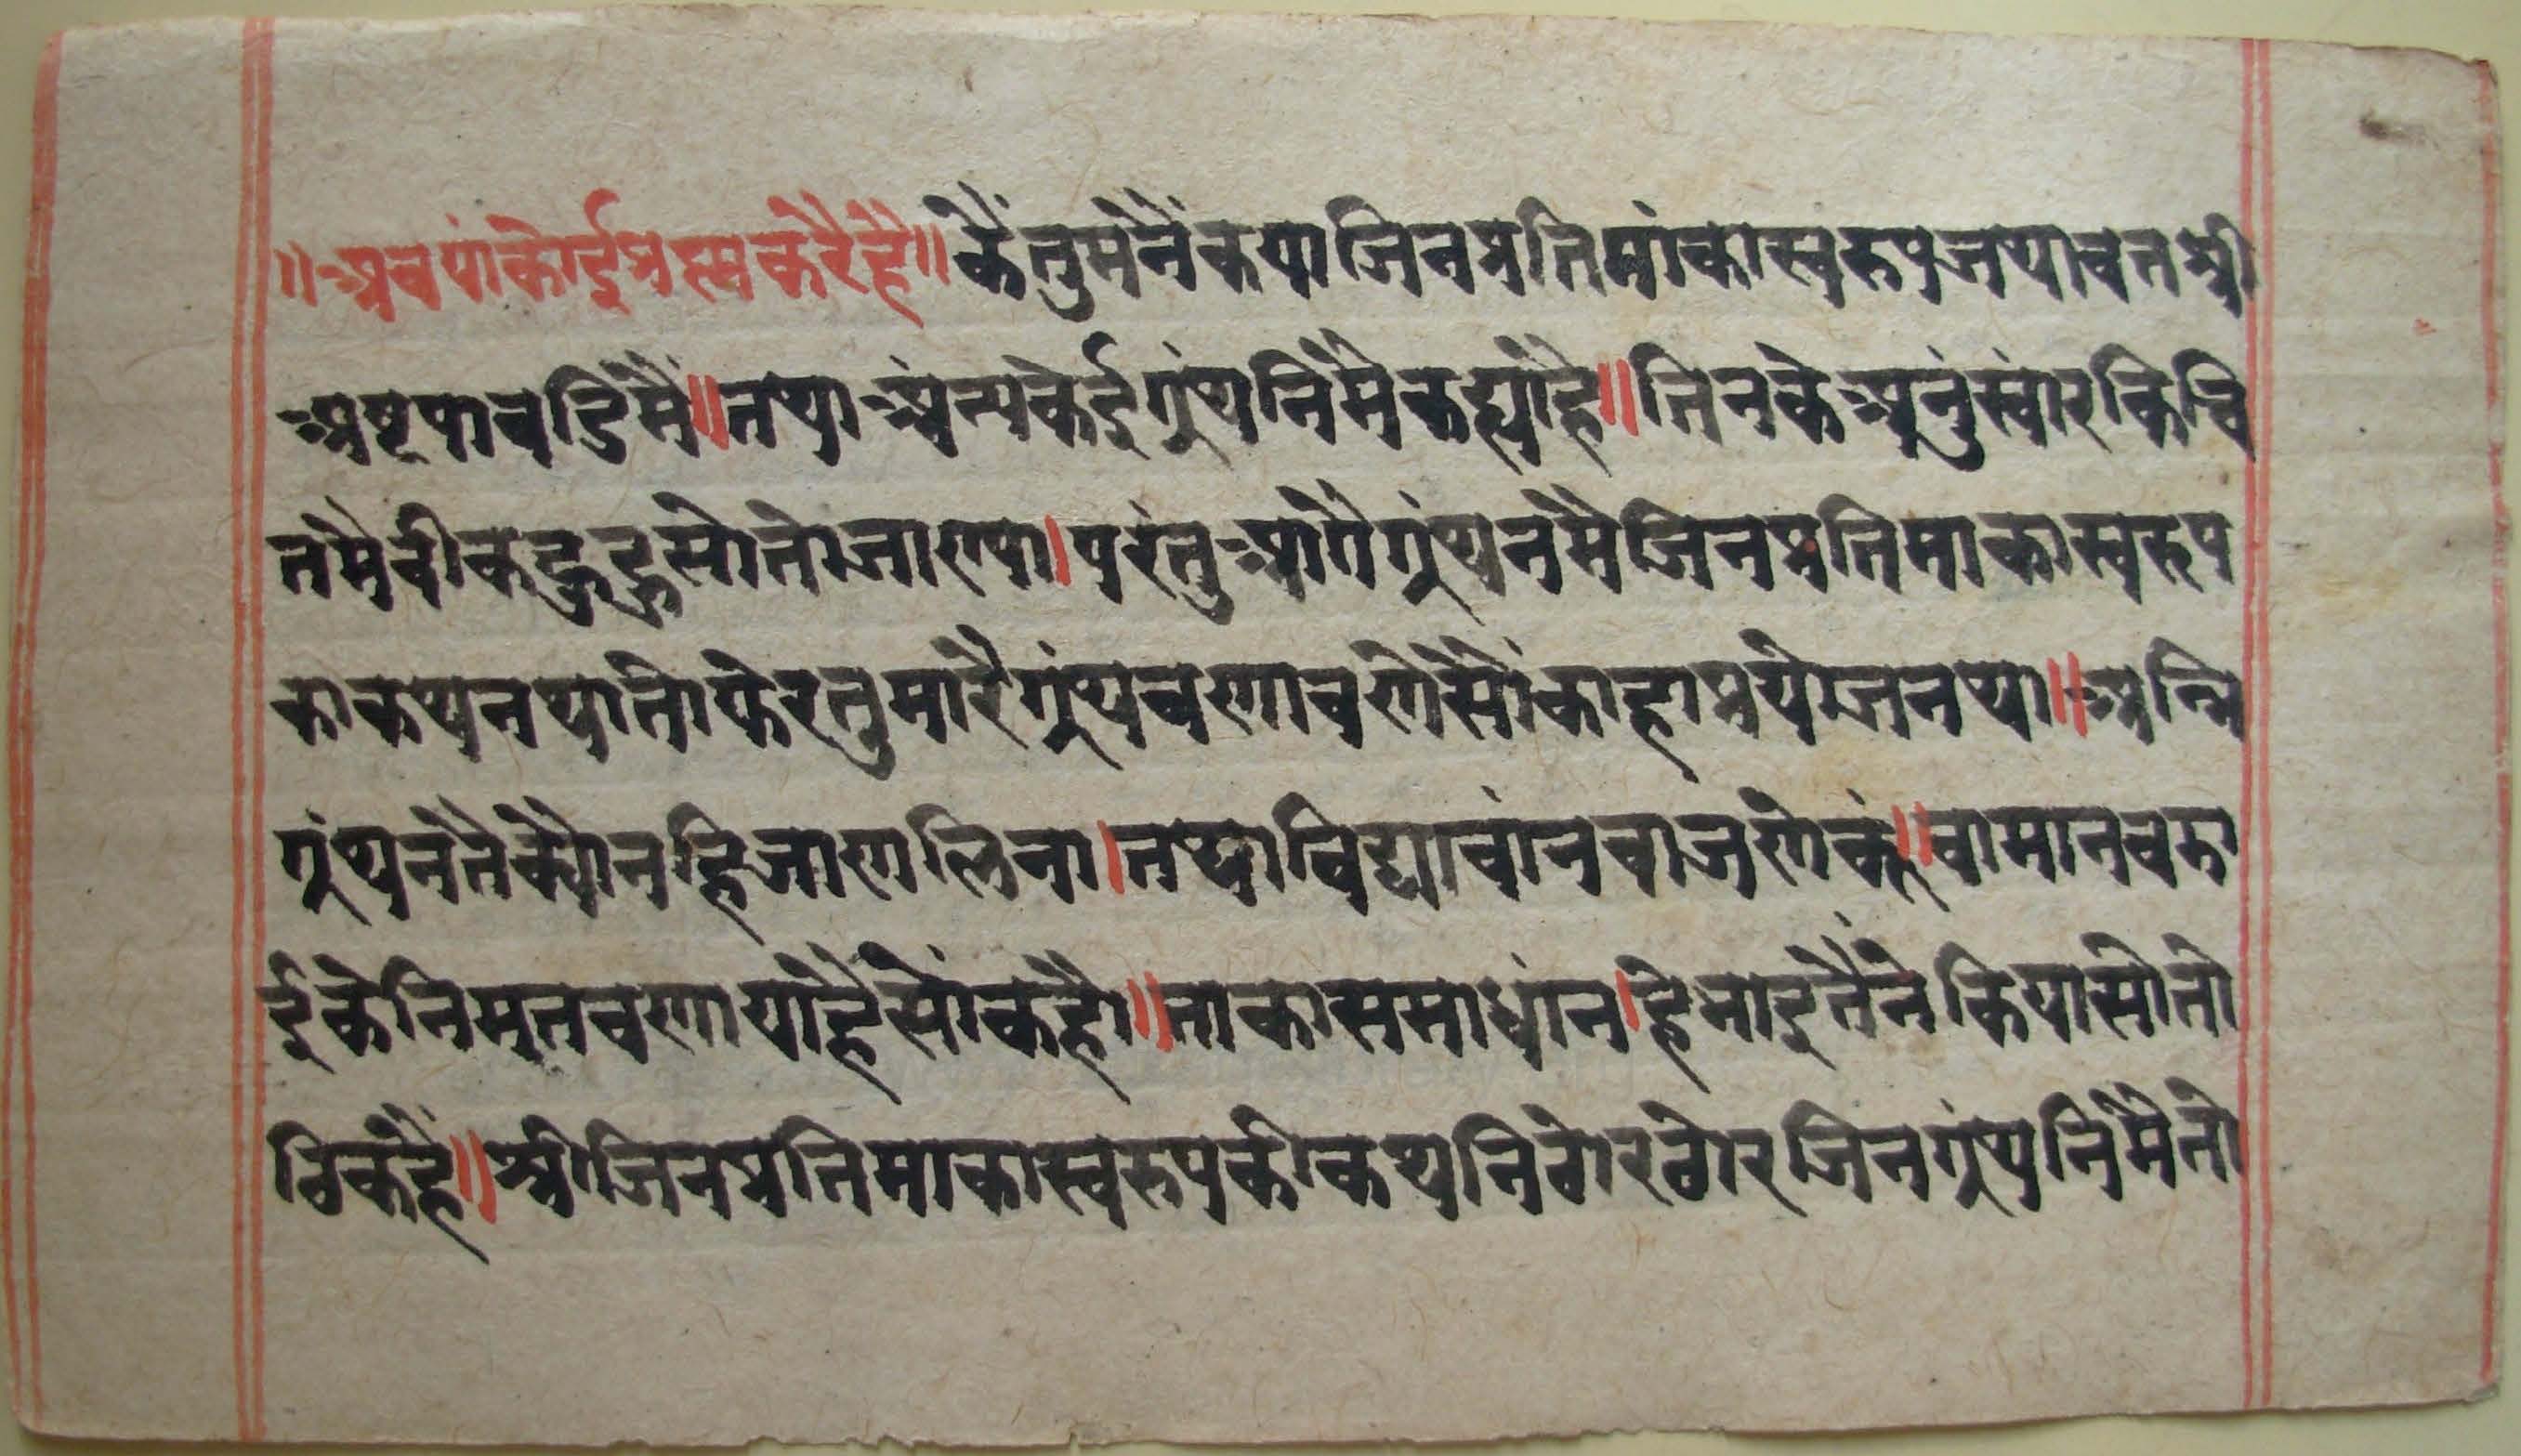 ॥अब पांकोई प्रस्न करै है॥ कैं तुमनैं कया जिनप्रतिमांका स्वरूप जथावत श्री
अष्टपावडिमैं॥ तथा अंन्य केई ग्रंथनिमै कह्यां है॥ तिनके अनुंस्वार किंचि
तमै बी कहुहु सो तो जाण्या। परंतु आगै ग्रंथनमै जिनप्रतिमाका स्वरूप
का कथन था तो फेर तुमारै ग्रंथ बणावणेसैं काहा प्रयोजन था॥ अन्नि
ग्रंथनतै क्यो नहि जाण लिना। तथा विद्यावांन बाजणेकूं॥ वा मान बडा
ई के निमत बणायो है सो कहो॥ ताका समाधांन। हे भाइ तैनै किया सो तो
ठिक है॥ श्री जिनप्रतिमाका स्वरूप की कथनि ठोर ठोर जिनग्रंथनिमै तो